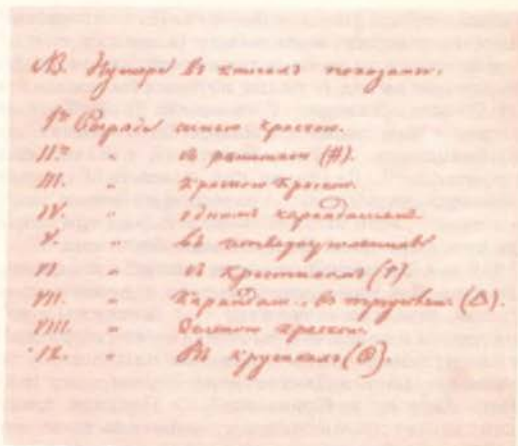 NB. Нумера въ книгахъ показаны:
Iго Разряда синею краскою.
II.го " въ (#).
III. " красною краскою.
IV. " однимъ карандашемъ
V. " въ четвероугольникѣ
VI " съ крестикомъ (†)
VII. " Карандаш. въ треугольн. (Δ).
VIII. " Зеленою краскою
IX. " (⊙).